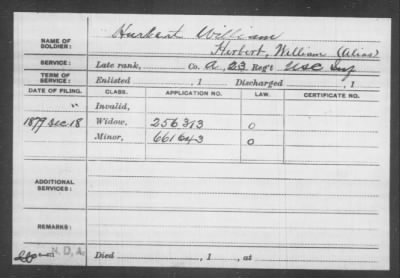 NAME OF SOLDIER: Hurbert William
Herbert, William (Alias)
SERVICE: Late rank, Co. A, 23 Regt. USC Inf
TERM OF SERVICE: Enlisted , 1 Discharged , 1
DATE OF FILING. CLASS. APPLICATION NO. LAW. CERTIFICATE NO.
" Invalid,
1879 Dec 18 Widow, 256313 0
Minor, 661643 0
ADDITIONAL SERVICES:
REMARKS:
N.D.A.
Died , 1 , at